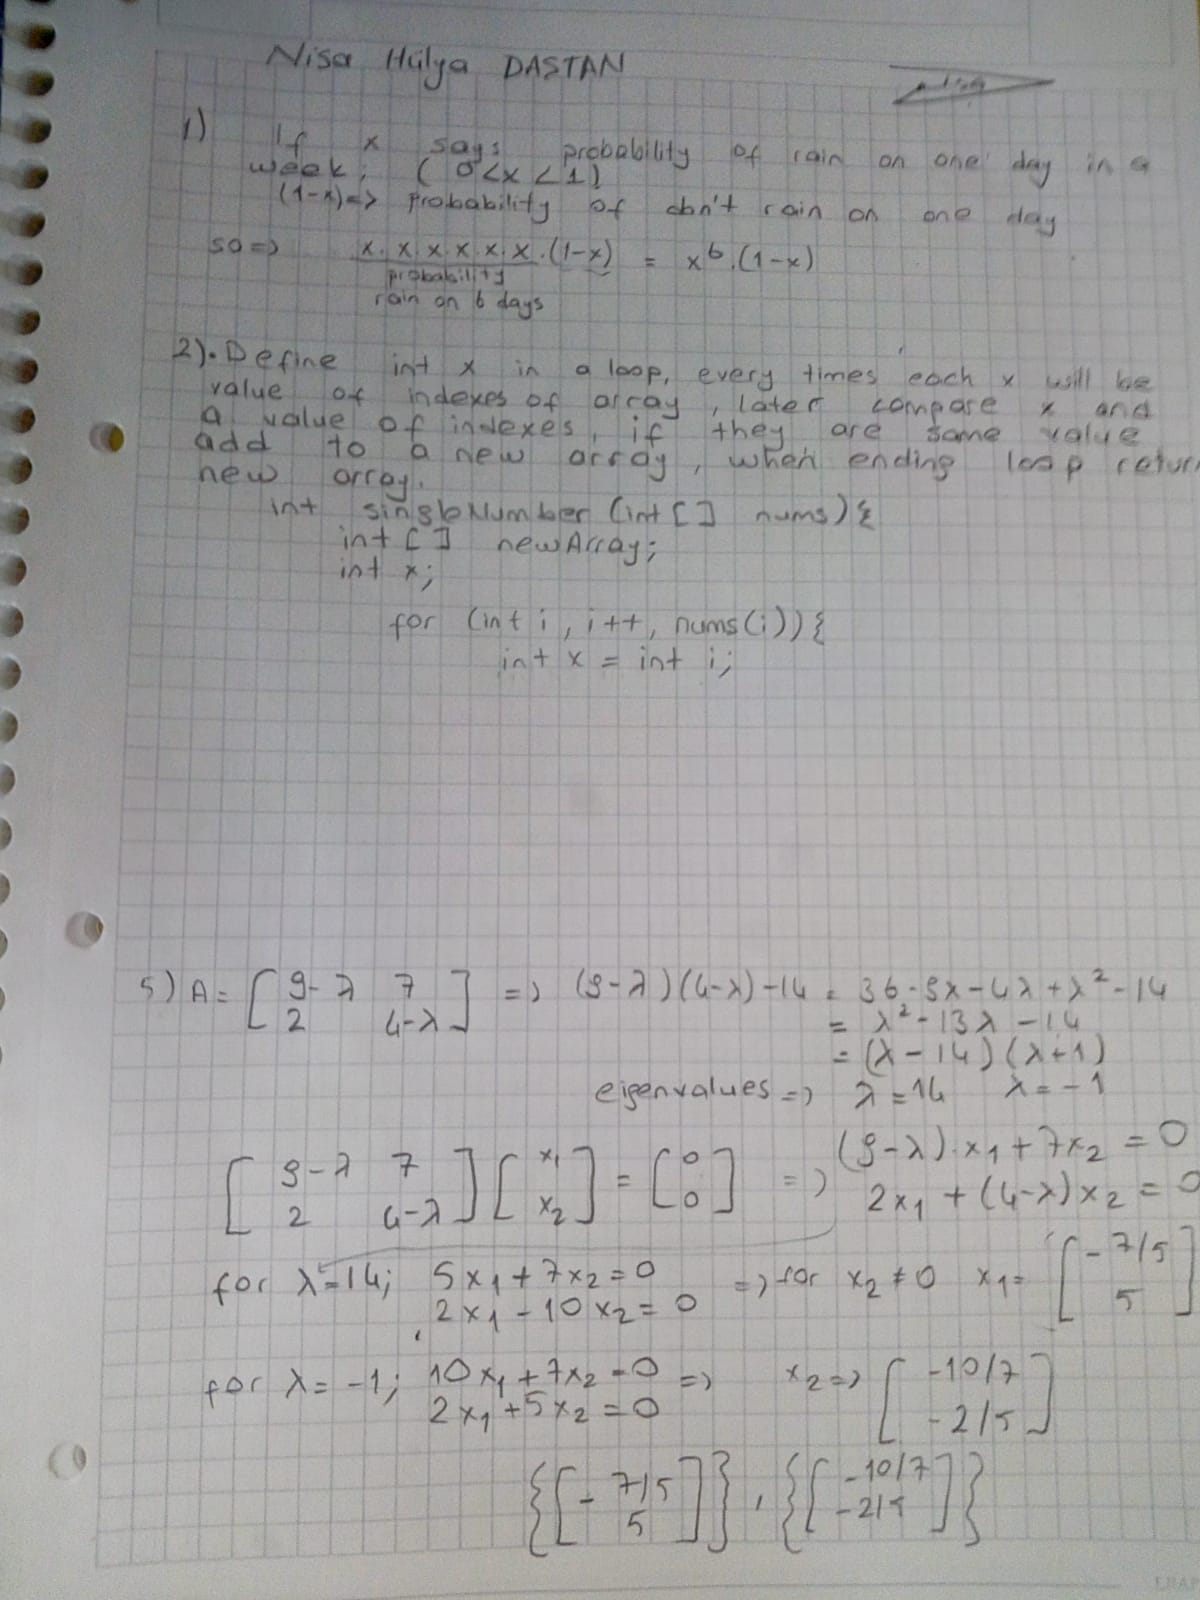 Nisa Hülya DASTAN
1) If x says probability of rain on one day in a
week; (0<x<1)
(1-x)=> probability of don't rain on one day
so => x.x.x.x.x.x.(1-x) = x⁶.(1-x)
probability
rain on 6 days
2). Define int x in a loop, every times each x will be
value of indexes of array, later compare x and
a value of indexes, if they are same value
add to a new array, when ending loop return
new array.
int singleNumber (int [] nums) {
int [] newArray;
int x;
for (int i, i++, nums(i)) {
int x = int i;
5) A = [ 9-λ 7 ] => (9-λ)(4-λ)-14 = 36-9λ-4λ+λ²-14
[ 2 4-λ ] = λ²-13λ-14
= (λ-14)(λ+1)
eigenvalues => λ=14 λ=-1
[ 9-λ 7 ] [ x₁ ] = [ 0 ] => (9-λ).x₁+7x₂ = 0
[ 2 4-λ ] [ x₂ ] [ 0 ] 2x₁+(4-λ)x₂ = 0
for λ=14; 5x₁+7x₂=0 => for x₂≠0 x₁= [ -7/5 ]
2x₁-10x₂=0 [ 5 ]
for λ=-1; 10x₁+7x₂=0 => x₂=> [ -10/7 ]
2x₁+5x₂=0 [ -2/5 ]
{[ -7/5 ]}, {[ -10/7 ]}
{[ 5 ]} {[ -2/5 ]}